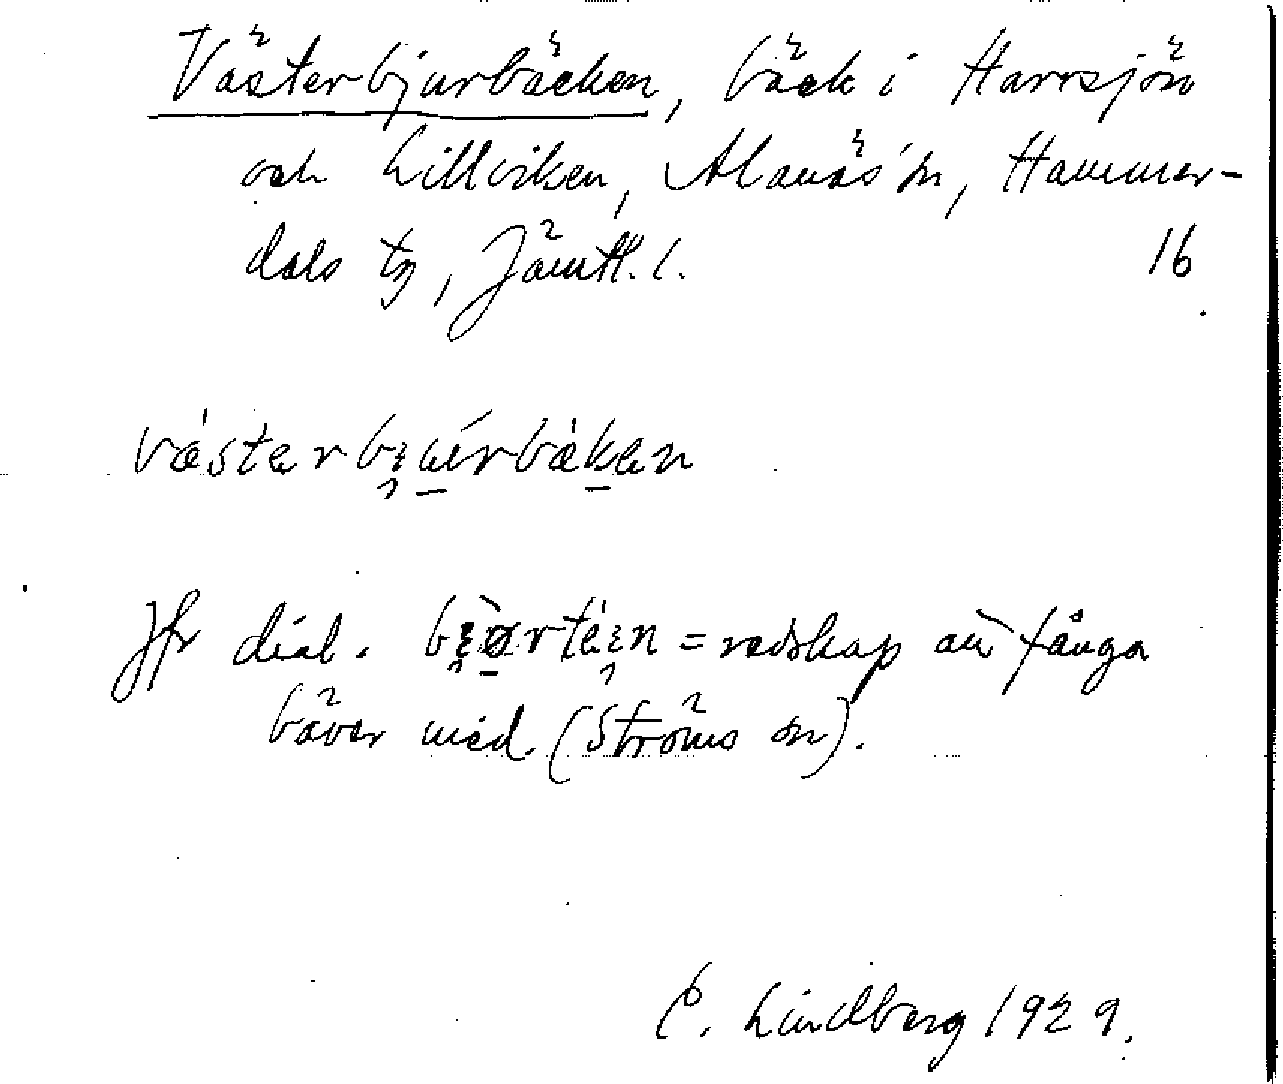 Västerbjurbäcken, bäck i Harrsjön
och Lillviken, Alanäs sn, Hammer-
dals tg, Jämtl. l. 16
Jfr dial. = redskap att fånga
bäver med (Ströms sn).
C. Lindberg 1929.